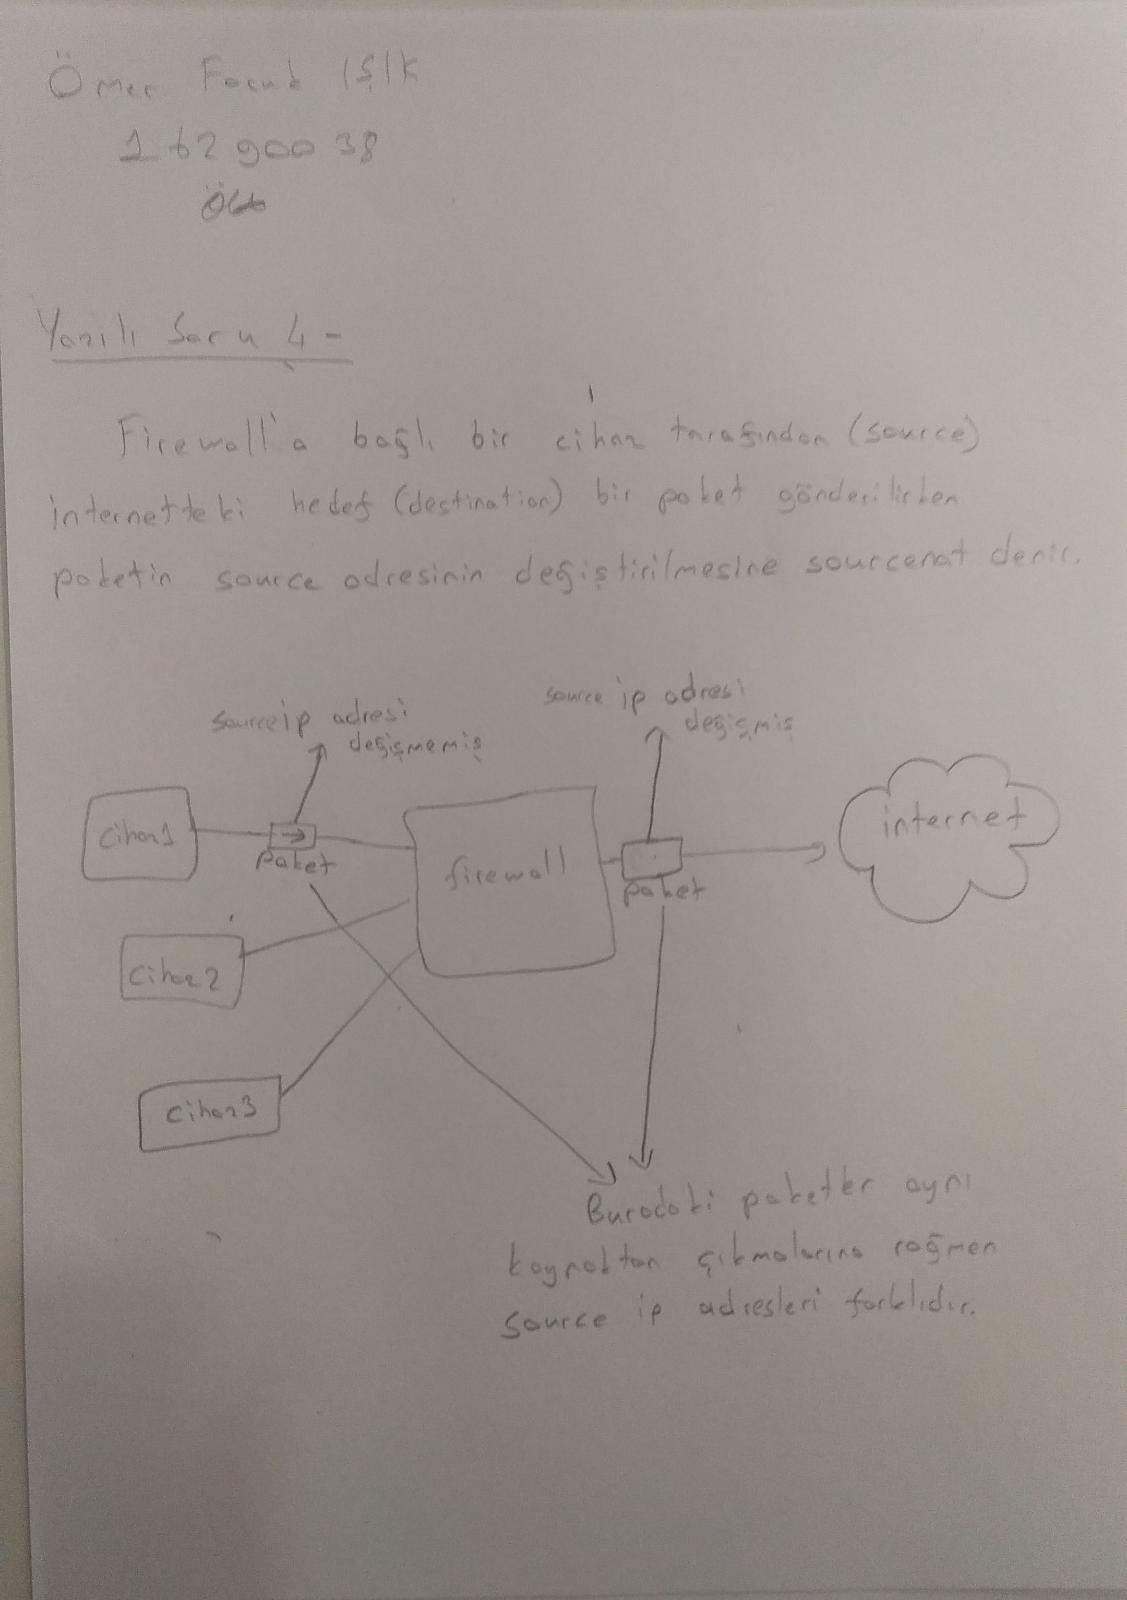 Ömer Faruk IŞIK
16290038
Yazılı Soru 4-
Firewall'a bağlı bir cihaz tarafından (source)
internetteki hedef (destination) bir paket gönderilirken
paketin source adresinin değiştirilmesine sourcenat denir.
source ip adresi
değişmemiş
source ip adresi
değişmiş
cihaz1
paket
firewall
paket
internet
cihaz2
cihaz3
Buradaki paketler aynı
kaynaktan çıkmalarına rağmen
source ip adresleri farklıdır.